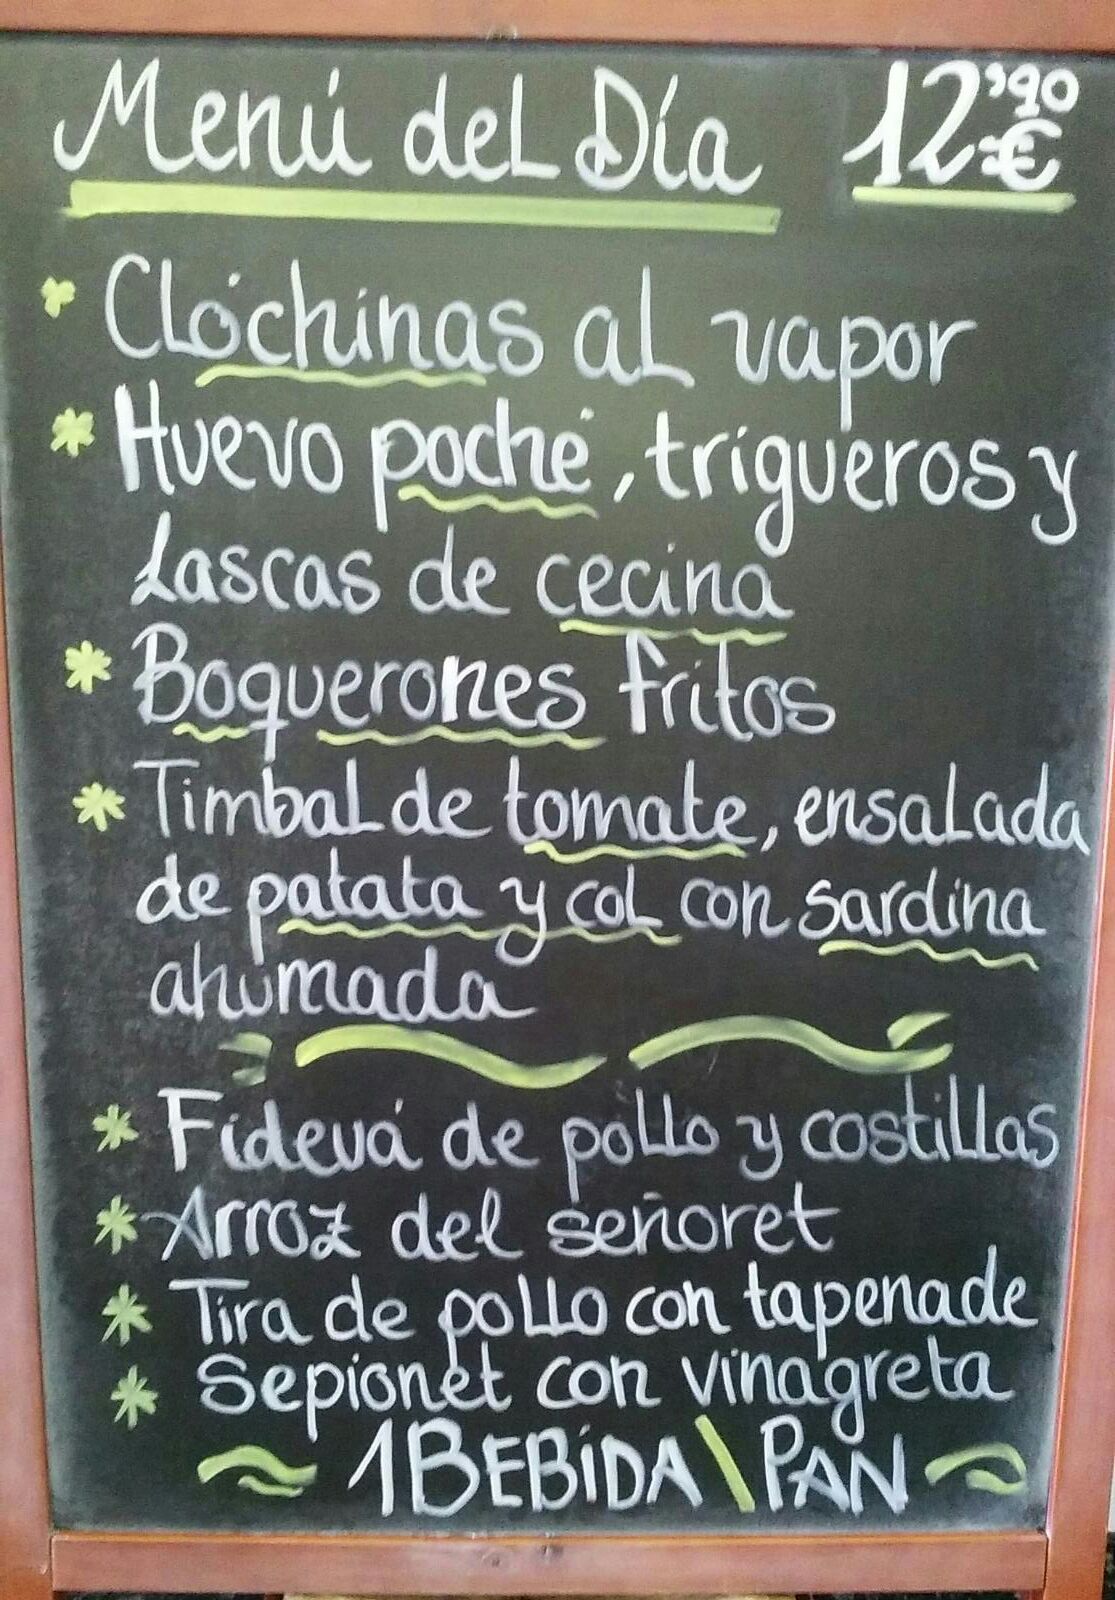 Menú del Día 12,90 €
* Clóchinas al vapor
* Huevo poché, trigueros y
Lascas de cecina
* Boquerones fritos
* Timbal de tomate, ensalada
de patata y col con sardina
ahumada
* Fidevá de pollo y costillas
* Arroz del señoret
* Tira de pollo con tapenade
* Sepionet con vinagreta
1 BEBIDA \ PAN